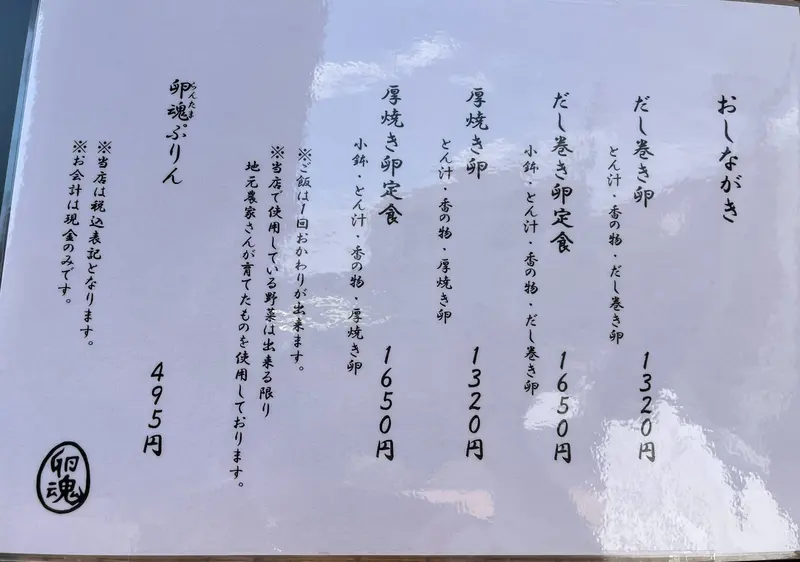 おしながき
だし巻き卵 1320円
とん汁・香の物・だし巻き卵
だし巻き卵定食 1650円
小鉢・とん汁・香の物・だし巻き卵
厚焼き卵 1320円
とん汁・香の物・厚焼き卵
厚焼き卵定食 1650円
小鉢・とん汁・香の物・厚焼き卵
※ご飯は1回おかわりが出来ます。
※当店で使用している野菜は出来る限り
地元農家さんが育てたものを使用しております。
らんたま
卵魂ぷりん 495円
※当店は税込表記となります。
※お会計は現金のみです。
卵魂